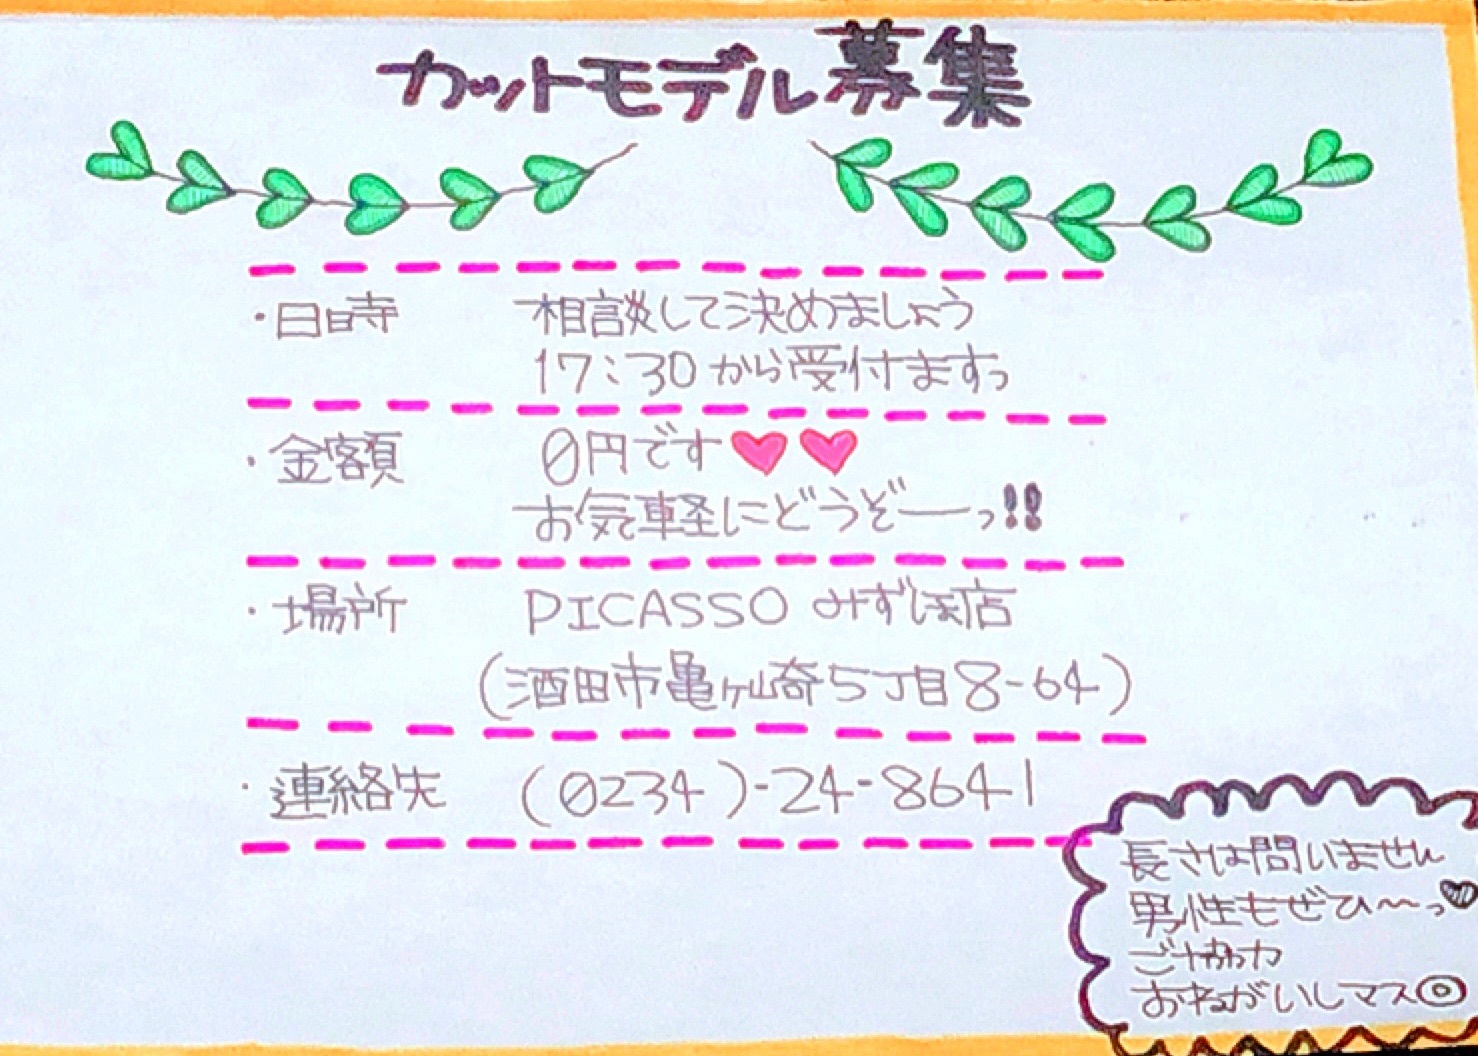 カットモデル募集
・日時 相談して決めましょう
17:30から受付ますっ
・金額 0円です♥♥
お気軽にどうぞーっ!!
・場所 PICASSO みずほ店
(酒田市亀ヶ崎5丁目8-64)
・連絡先 (0234)-24-8641
長さは問いません
男性もぜひ〜っ♥
ご協力
おねがいしマス◎